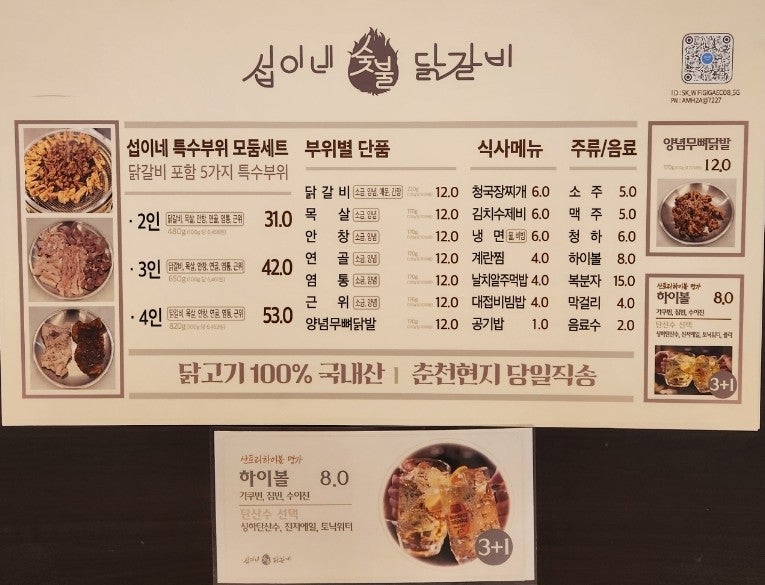 섭이네 숯불 닭갈비
섭이네 특수부위 모둠세트
닭갈비 포함 5가지 특수부위
· 2인 닭갈비, 목살, 안창, 연골, 염통, 근위 31.0
480g
· 3인 닭갈비, 목살, 안창, 연골, 염통, 근위 42.0
650g
· 4인 닭갈비, 목살, 안창, 연골, 염통, 근위 53.0
820g
부위별 단품
닭갈비 소금, 양념, 매운, 간장 12.0
목살 소금, 양념 170g 12.0
안창 소금, 양념 170g 12.0
연골 소금, 양념 170g 12.0
염통 소금, 양념 170g 12.0
근위 소금, 양념 170g 12.0
양념무뼈닭발 170g 12.0
식사메뉴
청국장찌개 6.0
김치수제비 6.0
냉면 물, 비빔 6.0
계란찜 4.0
날치알주먹밥 4.0
대접비빔밥 4.0
공기밥 1.0
주류/음료
소주 5.0
맥주 5.0
청하 6.0
하이볼 8.0
복분자 15.0
막걸리 4.0
음료수 2.0
양념무뼈닭발
170g 12.0
산토리하이볼 명가
하이볼 8.0
가쿠빈, 짐빈, 수이진
탄산수 선택
싱하탄산수, 진저에일, 토닉워터, 콜라
3+1
닭고기 100% 국내산 | 춘천현지 당일직송
산토리하이볼 명가
하이볼 8.0
가쿠빈, 짐빈, 수이진
탄산수 선택
싱하탄산수, 진저에일, 토닉워터
3+1
섭이네 숯불 닭갈비